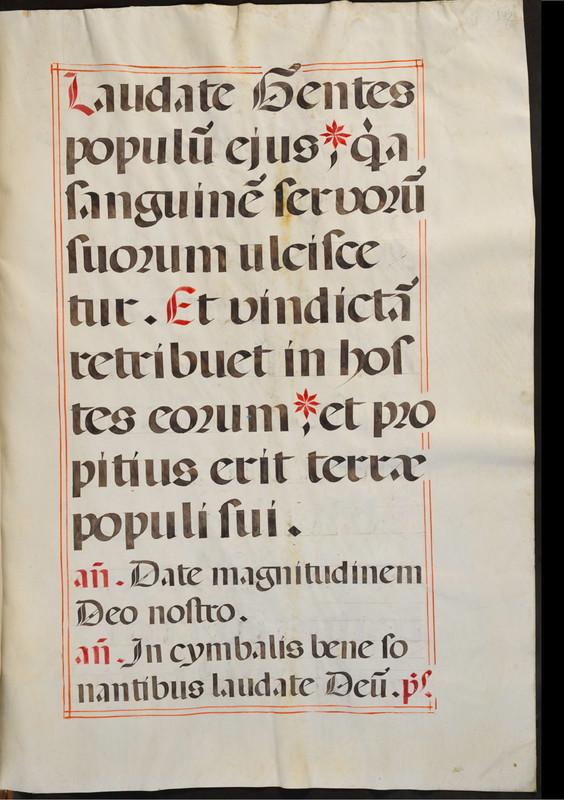 Laudate Gentes
populū ejus*; q̇a
ſanguinē ſervoꝛū
ſuoꝛum ulciſce
tur. Et vindictā
retribuet in hoſ
tes eoꝛum*; et pꝛo
pitius erit terræ
populi ſui.
an̄. Date magnitudinem
Deo noſtro.
an̄. In cymbalis bene ſo
nantibus laudate Deū. pſ.